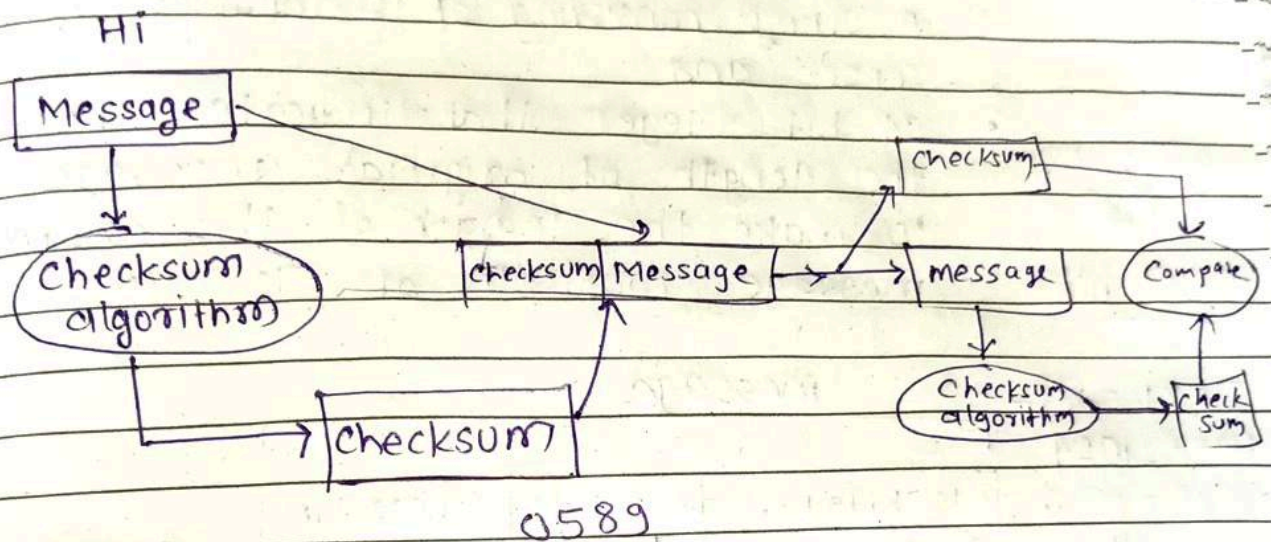 Hi
Message
Checksum
algorithm
Checksum
0589
Checksum Message
Checksum
Message
Checksum
algorithm
Check
sum
Compare